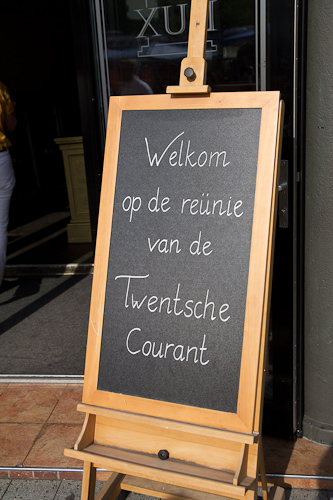 XUJ
Welkom
op de reünie
van de
Twentsche
Courant